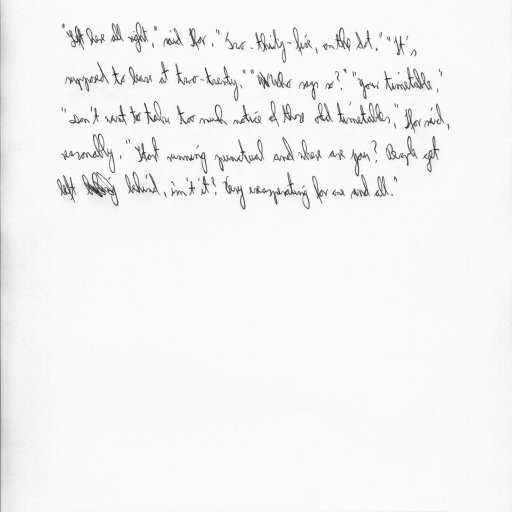 "Left here all right," said Flor. "Two-thirty-five, on the dot." "It's
supposed to leave at two-twenty." "Who says so?" "Your timetable."
"Don't want to take too much notice of those old timetables," Flor said,
reasonably. "Start running punctual and where are you? People get
left behind, isn't it? Very exasperating for one and all."